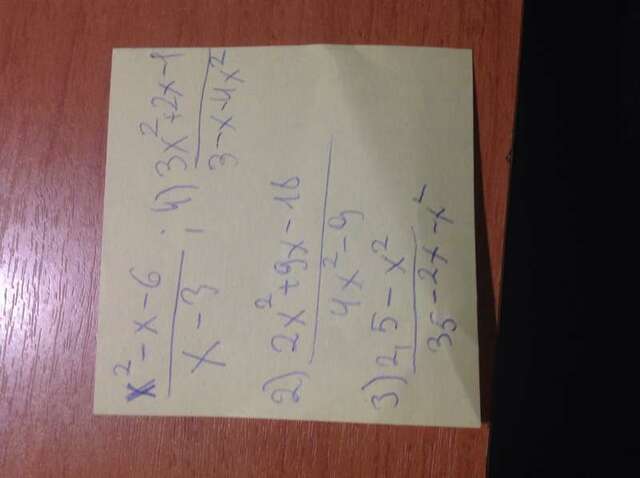 x² - x - 6 / x - 3 ; 4) 3x² + 2x - 1 / 3 - x - 4x²
2) 2x² + 9x - 18 / 4x² - 9
3) 2,5 - x² / 35 - 2x - x²